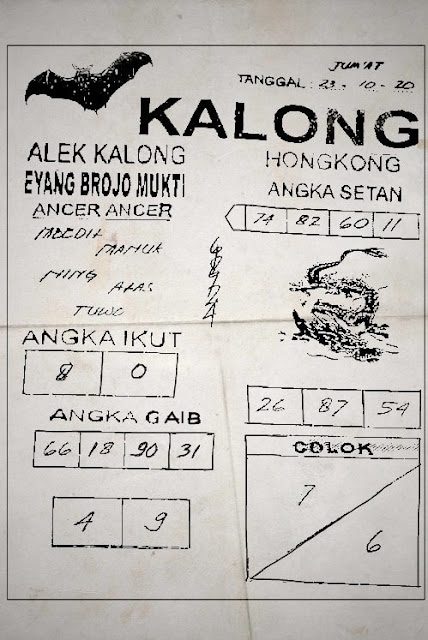 JUM'AT
TANGGAL : 23 - 10 - 20
KALONG
ALEK KALONG
HONGKONG
EYANG BROJO MUKTI
ANGKA SETAN
ANCER ANCER
74 82 60 11
MAMUK
MING
ALAS
TUWO
ANGKA IKUT
8 0
26 87 54
ANGKA GAIB
66 18 90 31
COLOK
7
6
4 9